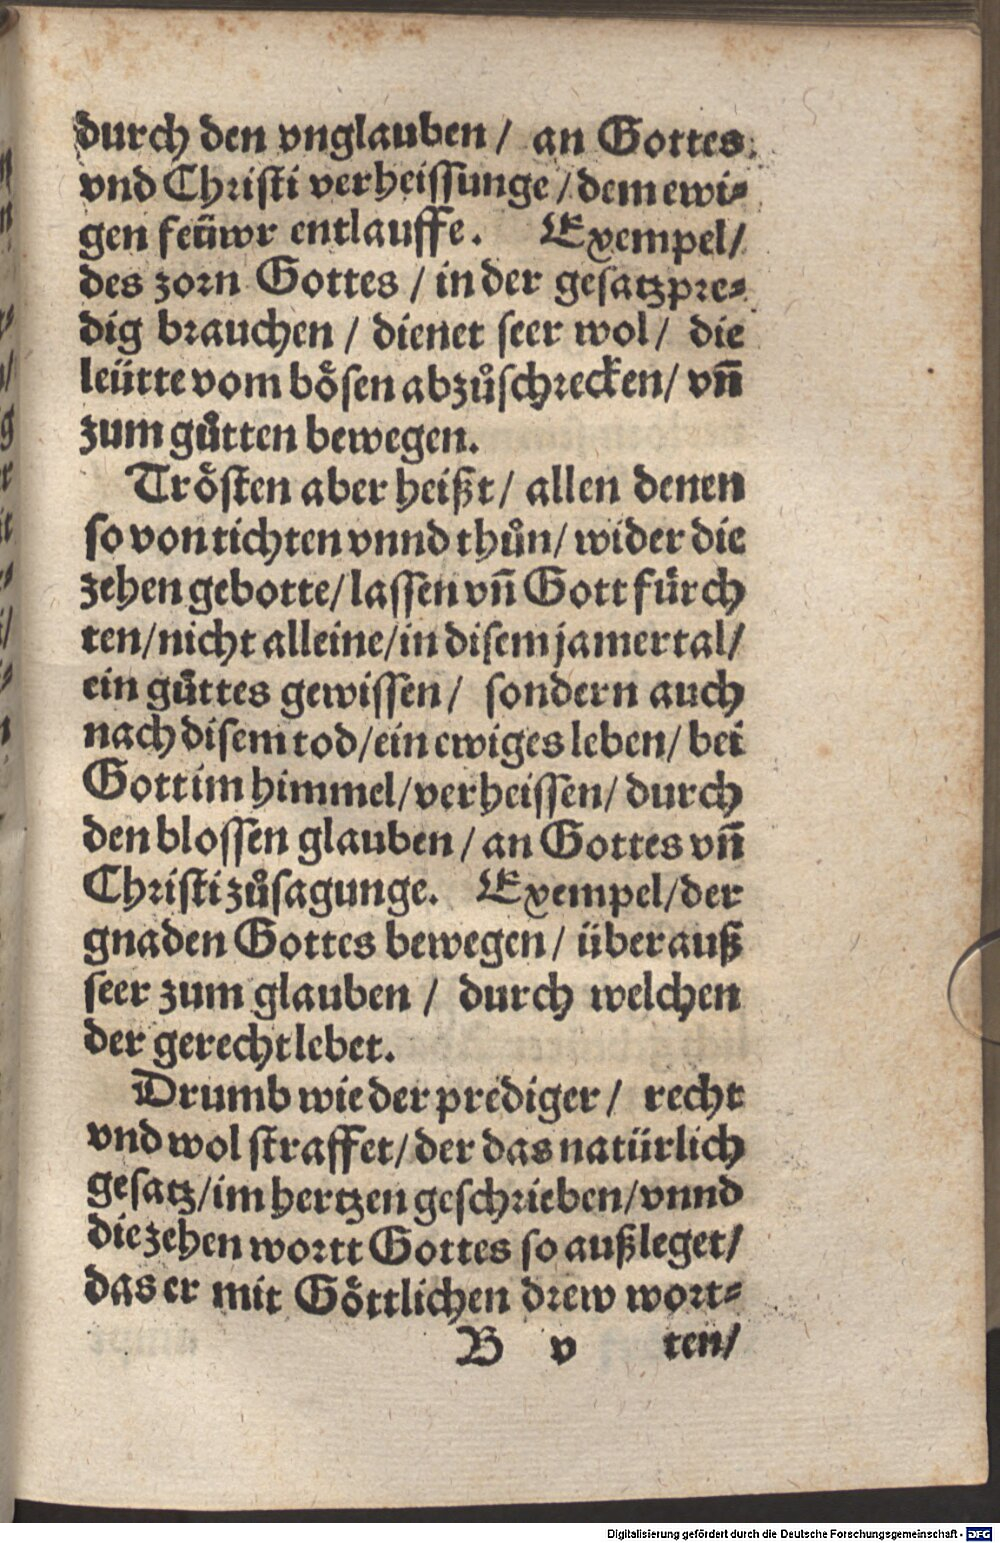 durch den vnglauben / an Gottes
vnd Christi verheissunge / dem ewi⸗
gen feüwr entlauffe. Exempel /
des zorn Gottes / in der gesatzpre⸗
dig brauchen / dienet seer wol / die
leütte vom bösen abzůschrecken / vñ
zum gůtten bewegen.
Trösten aber heißt / allen denen
so von tichten vnnd thůn / wider die
zehen gebotte / lassen vñ Gott fürch
ten / nicht alleine / in disem jamertal /
ein gůttes gewissen / sondern auch
nach disem tod / ein ewiges leben / bei
Gott im himmel / verheissen / durch
den blossen glauben / an Gottes vñ
Christi zůsagunge. Exempel / der
gnaden Gottes bewegen / überauß
seer zum glauben / durch welchen
der gerecht lebet.
Drumb wie der prediger / recht
vnd wol straffet / der das natürlich
gesatz / im hertzen geschrieben / vnnd
die zehen wortt Gottes so außleget /
das er mit Göttlichen drew wort⸗
B v ten /
Digitalisierung gefördert durch die Deutsche Forschungsgemeinschaft - DFG